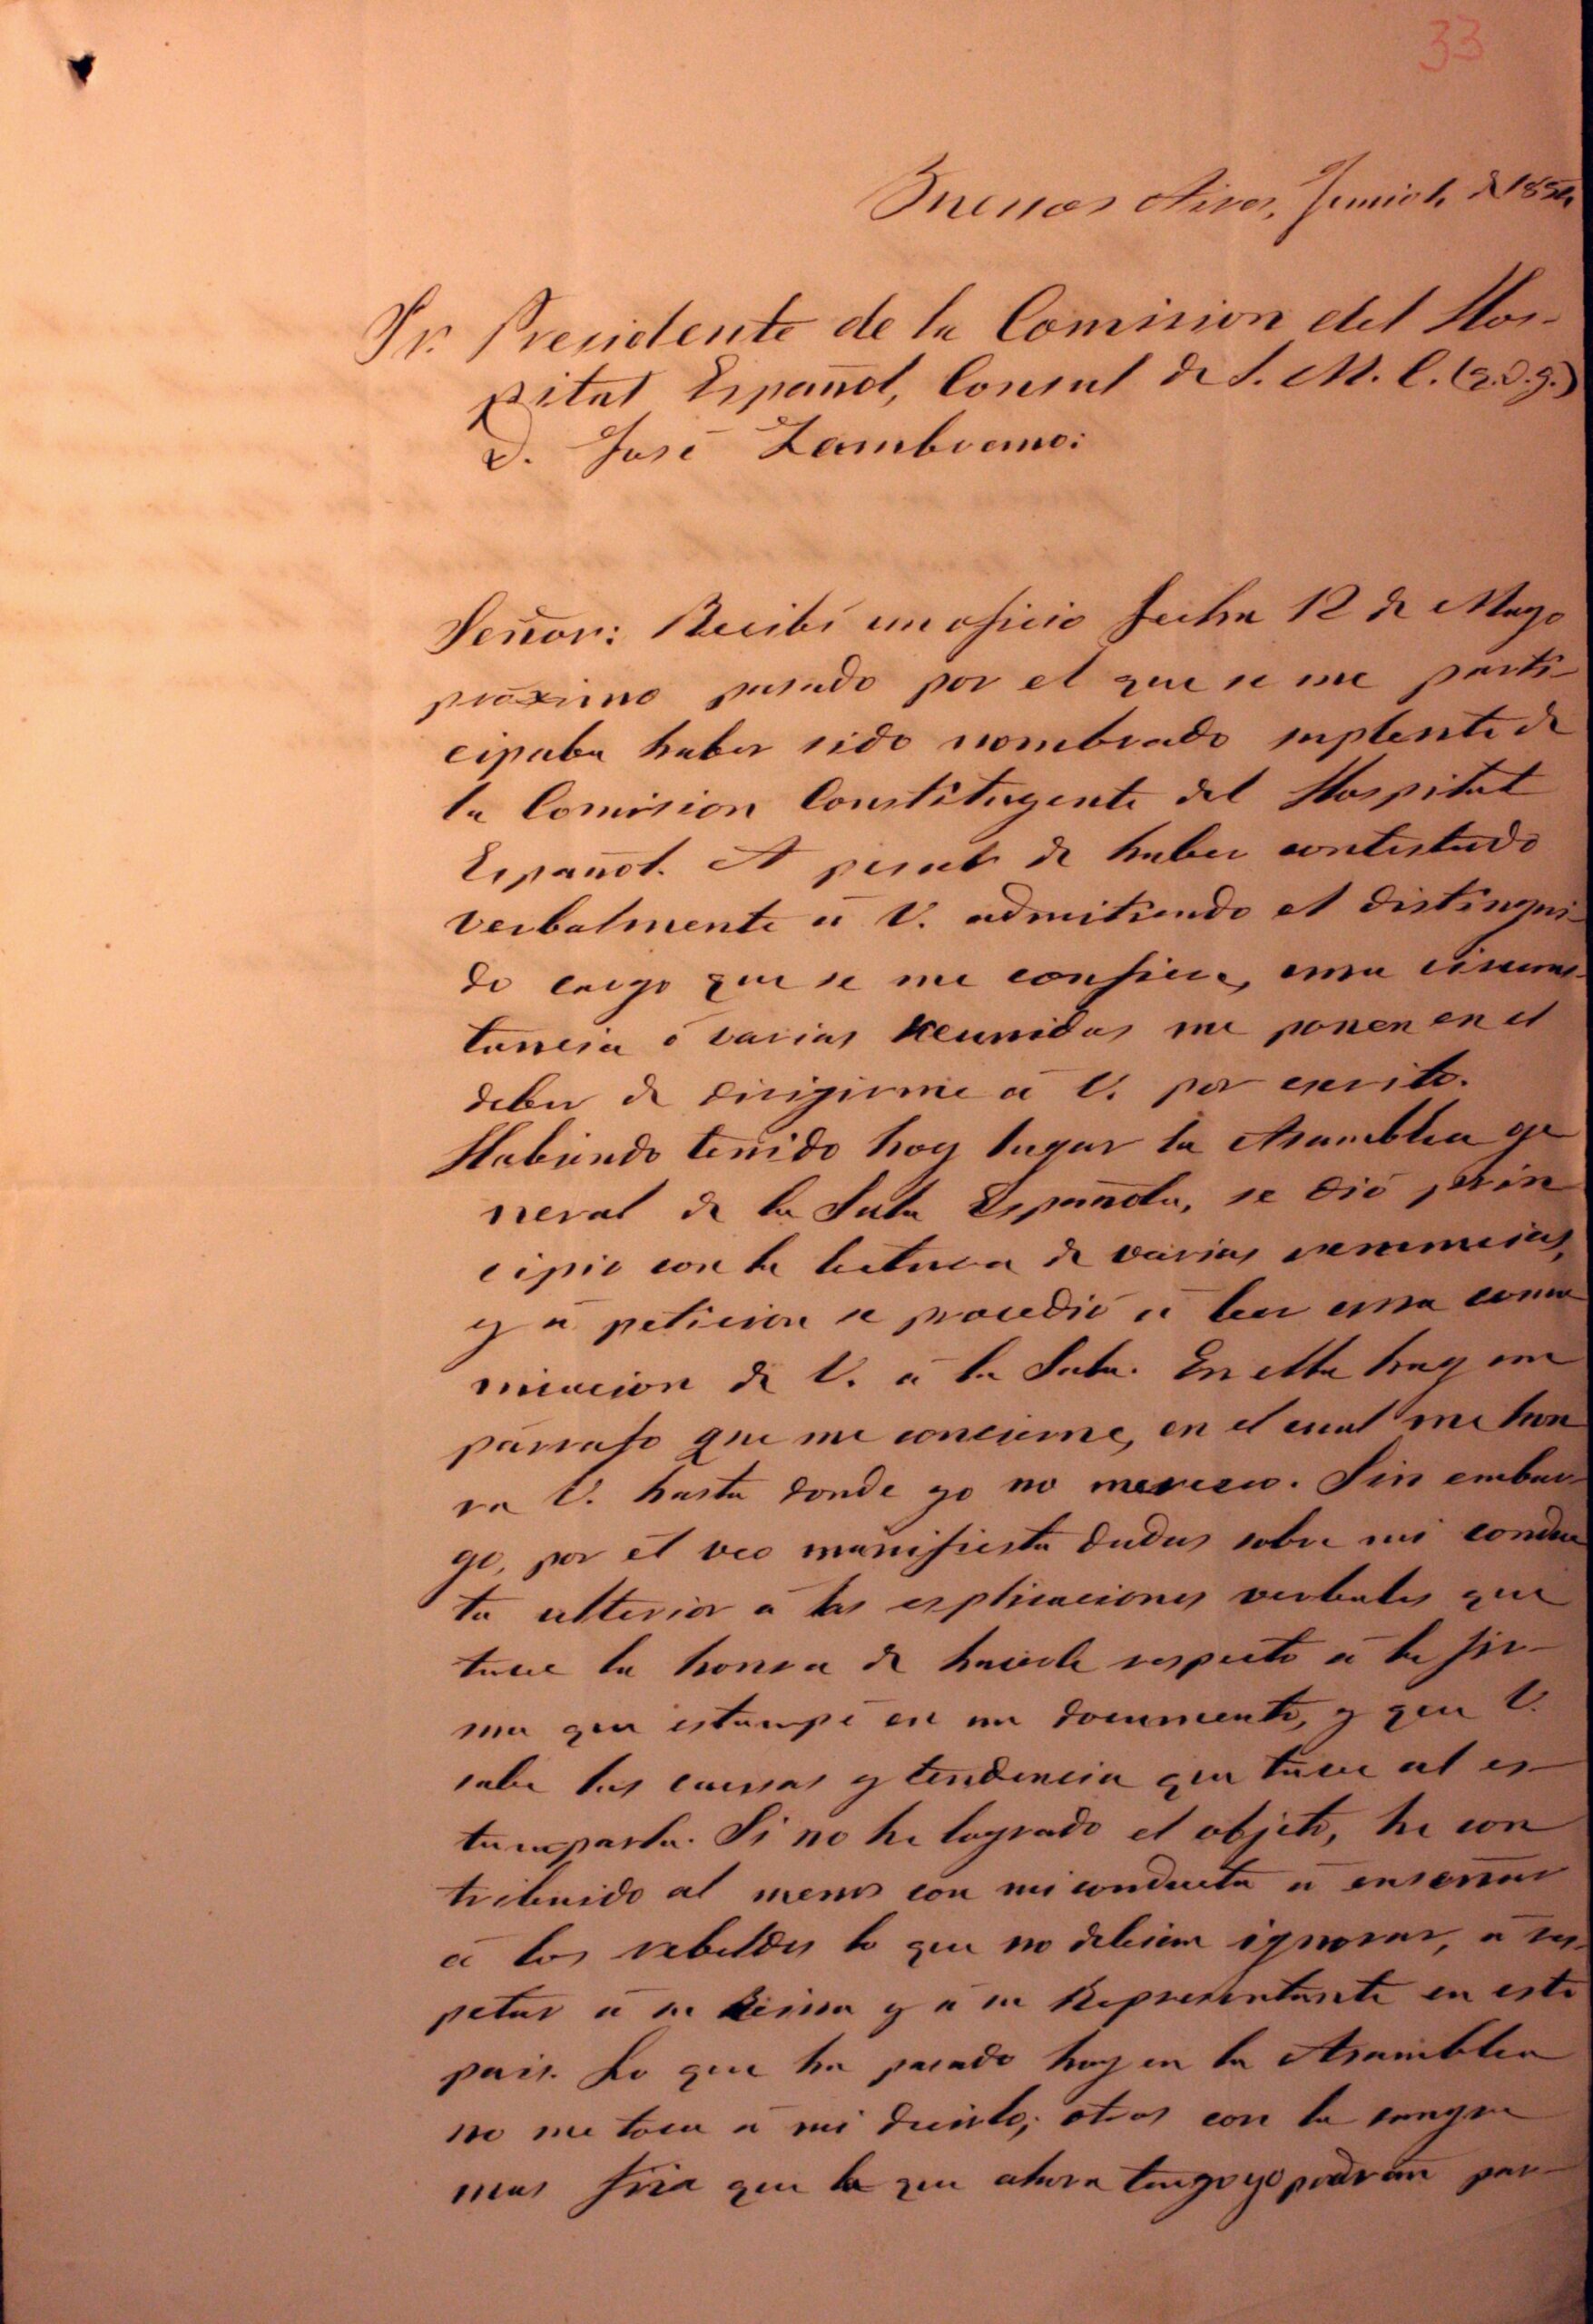 33
Buenos Aires, Junio 4 de 1854
Sr. Presidente de la Comision del Hos-
pital Español, Consul de S. M. C. (q. D. g.)
D. José Zambrano:
Señor: Recibí un oficio fecha 12 de Mayo
próximo pasado por el que se me parti-
cipaba haber sido nombrado suplente de
la Comision Constituyente del Hospital
Español. A pesar de haber contestado
verbalmente á V. admitiendo el distingui-
do cargo que se me confiere, una circuns-
tancia ó varias reunidas me ponen en el
deber de dirigirme á V. por escrito.
Habiendo tenido hoy lugar la Asamblea ge
neral de la Sala Española, se dió prin
cipio con la lectura de varias renuncias,
y á peticion se procedió á leer una comu
nicacion de V. á la Sala. En ella hay un
párrafo que me concierne, en el cual me hon
ra V. hasta donde yo no merezco. Sin embar-
go, por él veo manifiesta dudas sobre mi conduc
ta ulterior á las esplicaciones verbales que
tuve la honra de hacerle respecto á la fir-
ma que estampé en un documento, y que V.
sabe las causas y tendencia que tuve al es-
tamparla. Si no he logrado el objeto, he con
tribuido al menos con mi conducta á enseñar
á los rebeldes lo que no debieran ignorar, á res-
petar á su Reina y á su Representante en este
pais. Lo que ha pasado hoy en la Asamblea
no me toca á mi decirlo; otros con la sangre
mas fria que la que ahora tengo yo podrán par-